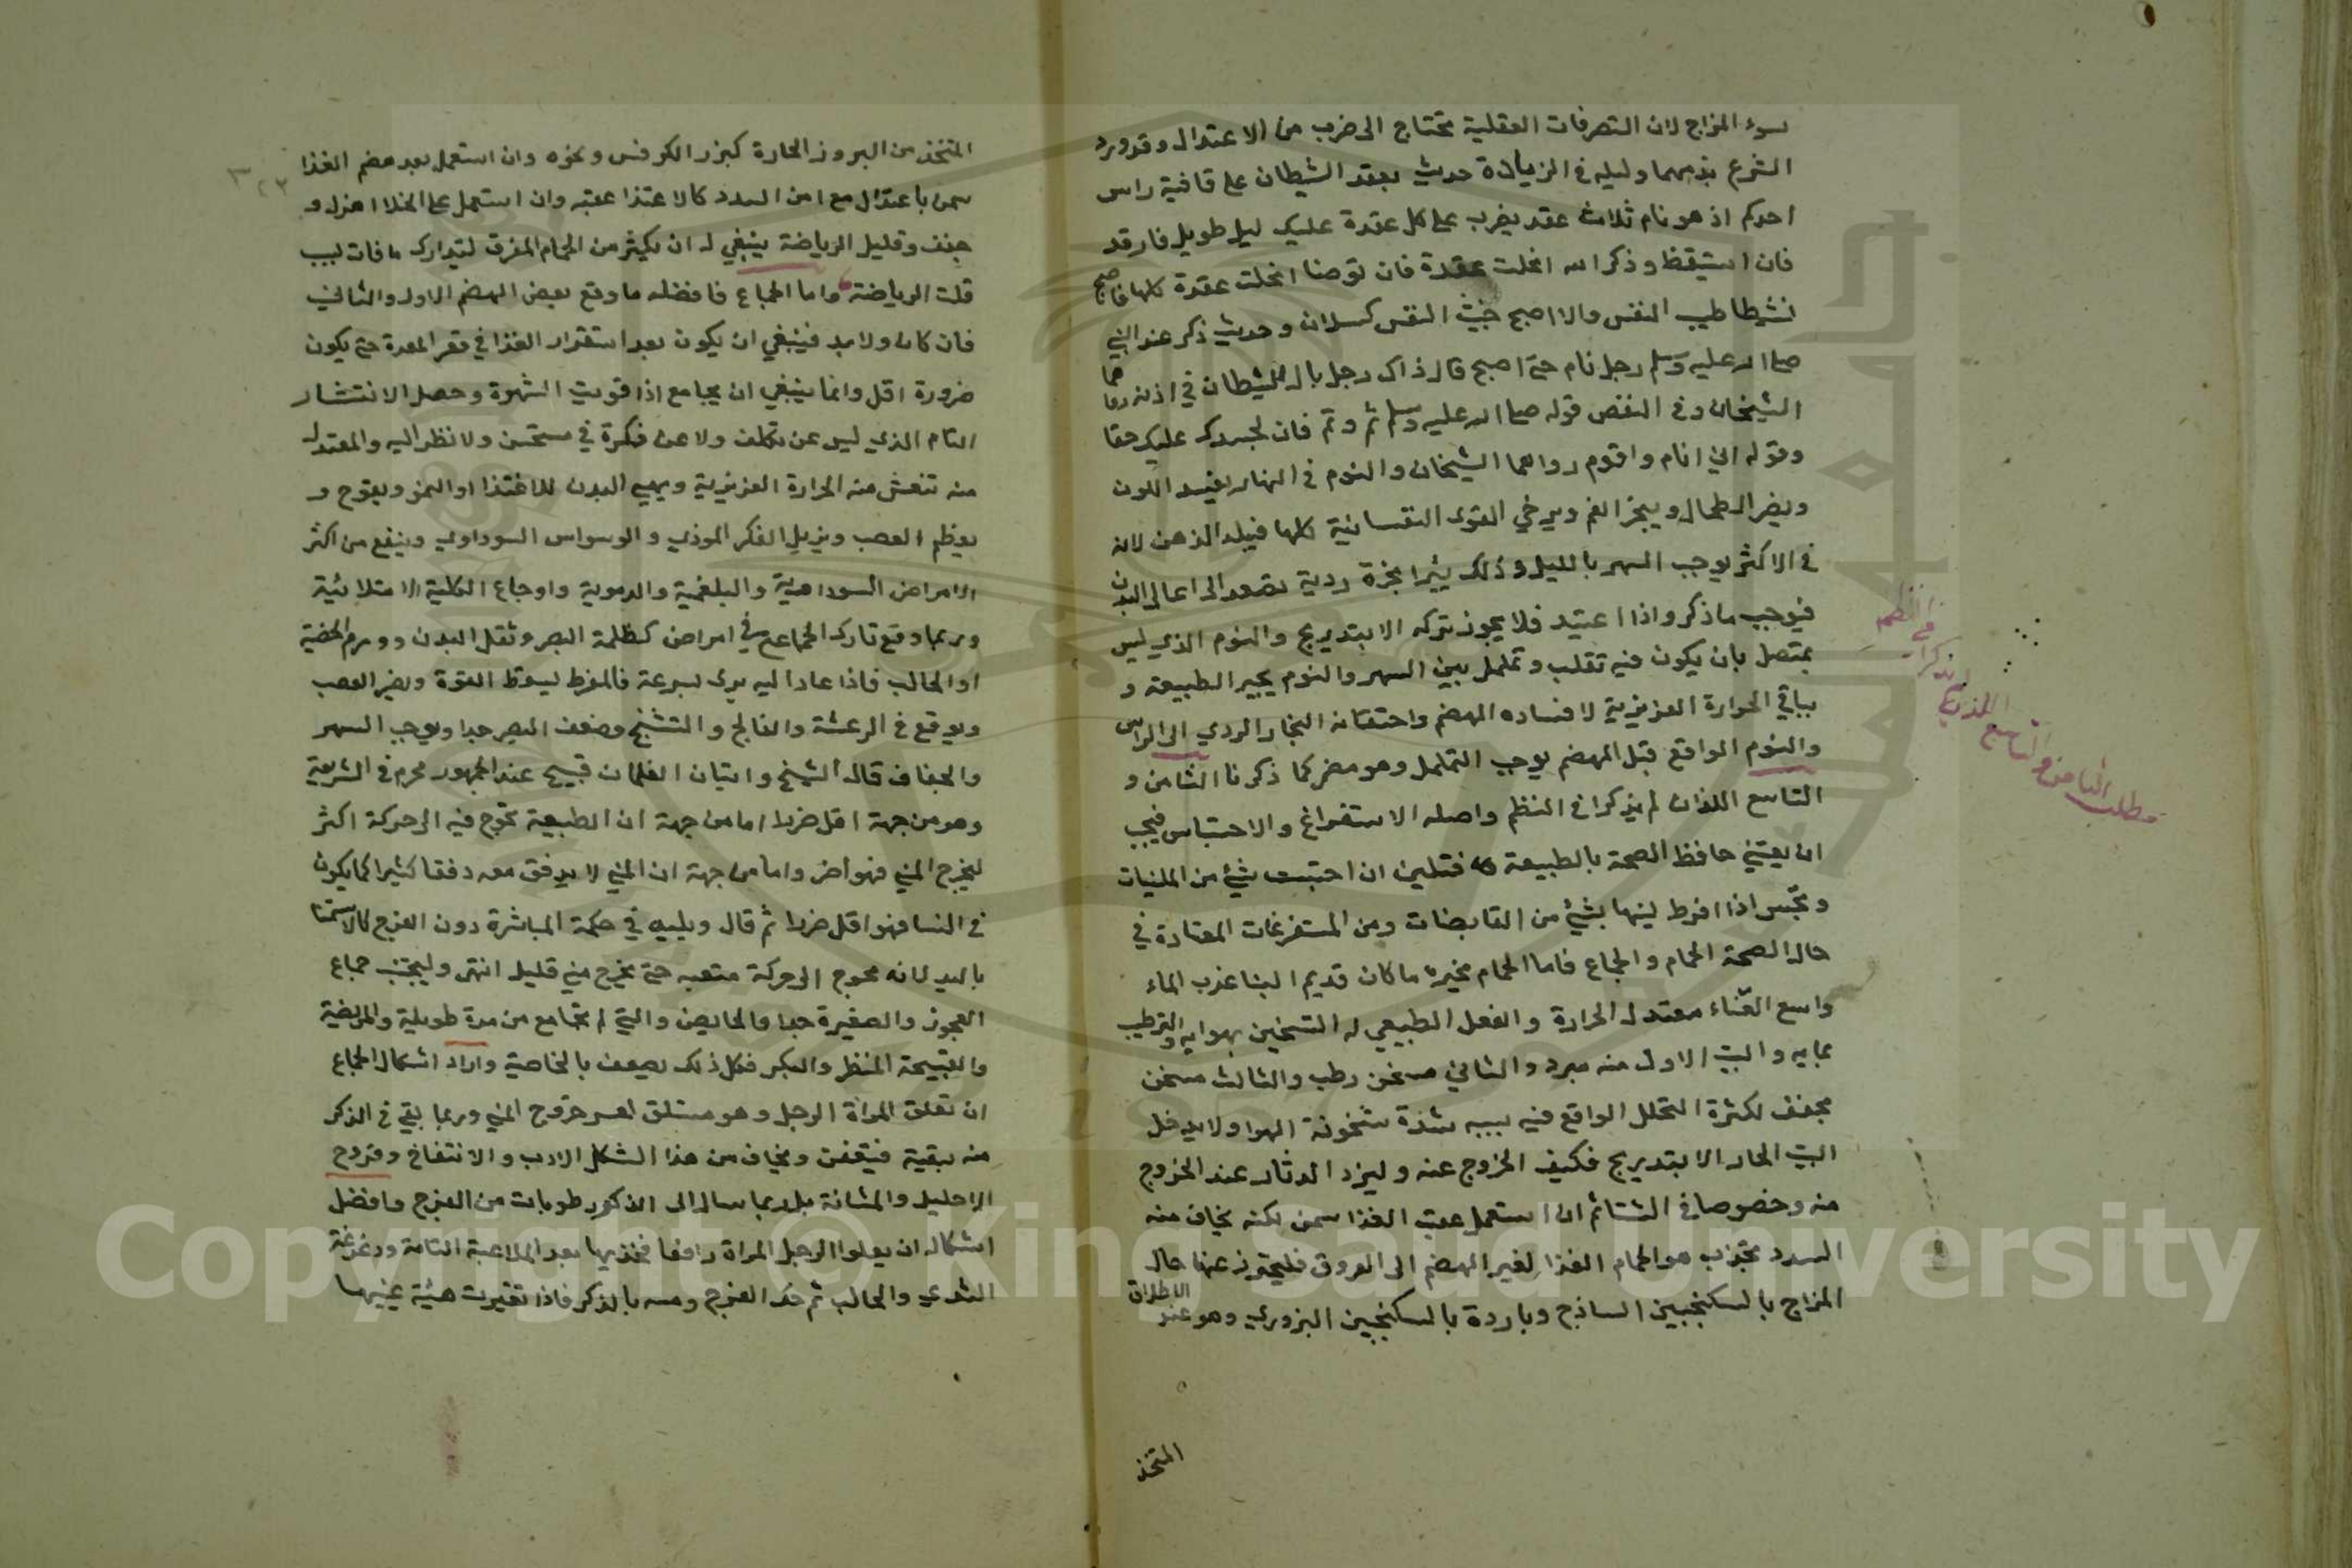 سوء المزاج لان التصرفات العقلية تحتاج الى ضرب من الاعتدال وقد ورد
الشرع بذمهما وليله في الزيادة حديث يعقد الشيطان على قافية راس
احدكم اذ هو نام ثلاث عقد يضرب على كل عقدة عليك ليل طويل فارقد
فان استيقظ وذكر الله انحلت عقدة فان توضا انحلت عقدة كلها فاصبح
نشيطا طيب النفس والا اصبح خبيث النفس كسلان وحديث ذكر عند النبي
صلى الله عليه وسلم رجل نام حتى اصبح قال ذاك رجل بال الشيطان في اذنه رواهما
الشيخان وفي النقص قوله صلى الله عليه وسلم قم ونم فان لجسدك عليك حقا
وقوله اني انام واقوم رواهما الشيخان والنوم في النهار يفسد اللون
ويضر الطحال ويبخر الفم ويرخي القوى النفسانية كلها فيبلد الذهن لانه
في الاكثر يوجب السهر بالليل وذلك يثير ابخرة ردية تصعد الى اعالي البدن
فيوجب ما ذكر واذا اعتيد فلا يجوز تركه الا بتدريج والنوم الذي ليس
بمتصل بان يكون فيه تقلب وتململ بين السهر والنوم يحير الطبيعة و
بباقي الحرارة الغريزية لافساده الهضم واحتقانه البخار الردي الى الراس
والنوم الواقع قبل الهضم يوجب التململ وهو مضر كما ذكرنا الثامن و
التاسع اللذان لم يذكرا في النظم واصله الاستفراغ والاحتباس فيجب
ان يعتني حافظ الصحة بالطبيعة فتلين ان احتبست بشيء من الملينات
وتحبس اذا افرط لينها بشيء من القابضات ومن المستفرغات المعتادة في
حال الصحة الحمام والجماع فاما الحمام فخيره ما كان قديم البنا عذب الماء
واسع الفناء معتدل الحرارة والفعل الطبيعي له التسخين بهوايه والترطيب
بمايه والبيت الاول منه مبرد والثاني مسخن رطب والثالث مسخن
مجفف لكثرة التحلل الواقع فيه بسبب شدة سخونة الهوا ولا يدخل
البيت الحار الا بتدريج فكيف الخروج عنه وليزد الدثار عند الخروج
منه وخصوصا في الشتا ثم ان استعمل عقب الغذا سمن لكنه يخاف منه
السدد بجذب هو الحمام الغذا لغير الهضم الى العروق فليحترز عنها حال
المزاج بالسكنجبين الساذج وبارده بالسكنجبين البزوري وهو عند الاطلاق
المتخذ
مطلب الثامن والتاسع اللذين لم يذكرا في النظم
المتخذ من البروز الحارة كبزر الكرفس ونحوه وان استعمل بعد هضم الغذا
سمن باعتدال مع امن السدد كالاعتذا عقبه وان استعمل على الخلا اهزل و
جفف وقليل الرياضة ينبغي له ان يكثر من الحمام المعرق ليتدارك ما فات بسبب
قلت الرياضة واما الجماع فافضله ما وقع بعض الهضم الاول والثاني
فان كان ولا بد فينبغي ان يكون بعد استقرار الغذا في قعر المعدة حتى يكون
ضرورة اقل وانما ينبغي ان يجامع اذا قويت الشهوة وحصل الانتشار
التام الذي ليس عن تكلف ولا عن فكرة في مستحسن ولا نظر اليه والمعتدل
منه تنعش منه الحرارة الغريزية ويهيي البدن للاغتذا او النمو ويفرح و
يعظم الغضب ويزيل الفكر الموذي والوسواس السوداوي وينفع من اكثر
الامراض السوداوية والبلغمية والدموية واوجاع الكلية الامتلائية
وربما وقع تارك الجماع في امراض كظلمة البصر وثقل البدن وورم الخصية
او الحالب فاذا عاد اليه بري بسرعة فالمفرط يسقط القوة ويضر العصب
ويوقع في الرعشة والفالج والتشنج وضعف البصر جدا ويوجب السهر
والجفاف قال الشيخ واتيان الغلمان قبيح عند الجمهور محرم في الشريعة
وهو من جهة اقل ضررا اما من جهة ان الطبيعة تحوج فيه الى حركة اكثر
ليخرج المني فهو اضر واما من جهة ان المني لا يدفق معه دفقا كثيرا كما يكون
في النسا فهو اقل ضررا ثم قال ويليه في حكمة المباشرة دون الفرج كالاستمنا
باليد لانه محوج الى حركة متعبه حتى يخرج مني قليل انتهى وليجتنب جماع
العجوز والصغيرة جدا والحايض والتي لم تجامع من مدة طويلة والمريضة
والقبيحة المنظر والبكر فكل ذلك يضعف بالخاصية واراد اشكال الجماع
ان تعلو المراة الرجل وهو مستلق لعسر خروج المني وربما بقي في الذكر
منه بقية فتعفن ويخاف من هذا الشكل الادب والانتفاخ وقروح
الاحليل والمثانة بل ربما سال الى الذكور طوبات من الفرج وافضل
اشكاله ان يعلوا الرجل المراة رافعا فخذيها بعد الملاعبة التامة ودغدغة
الثدي والحالب ثم حك الفرج ومسه بالذكر فاذا تغيرت هيئة عينيها
Copyright © King Saud University